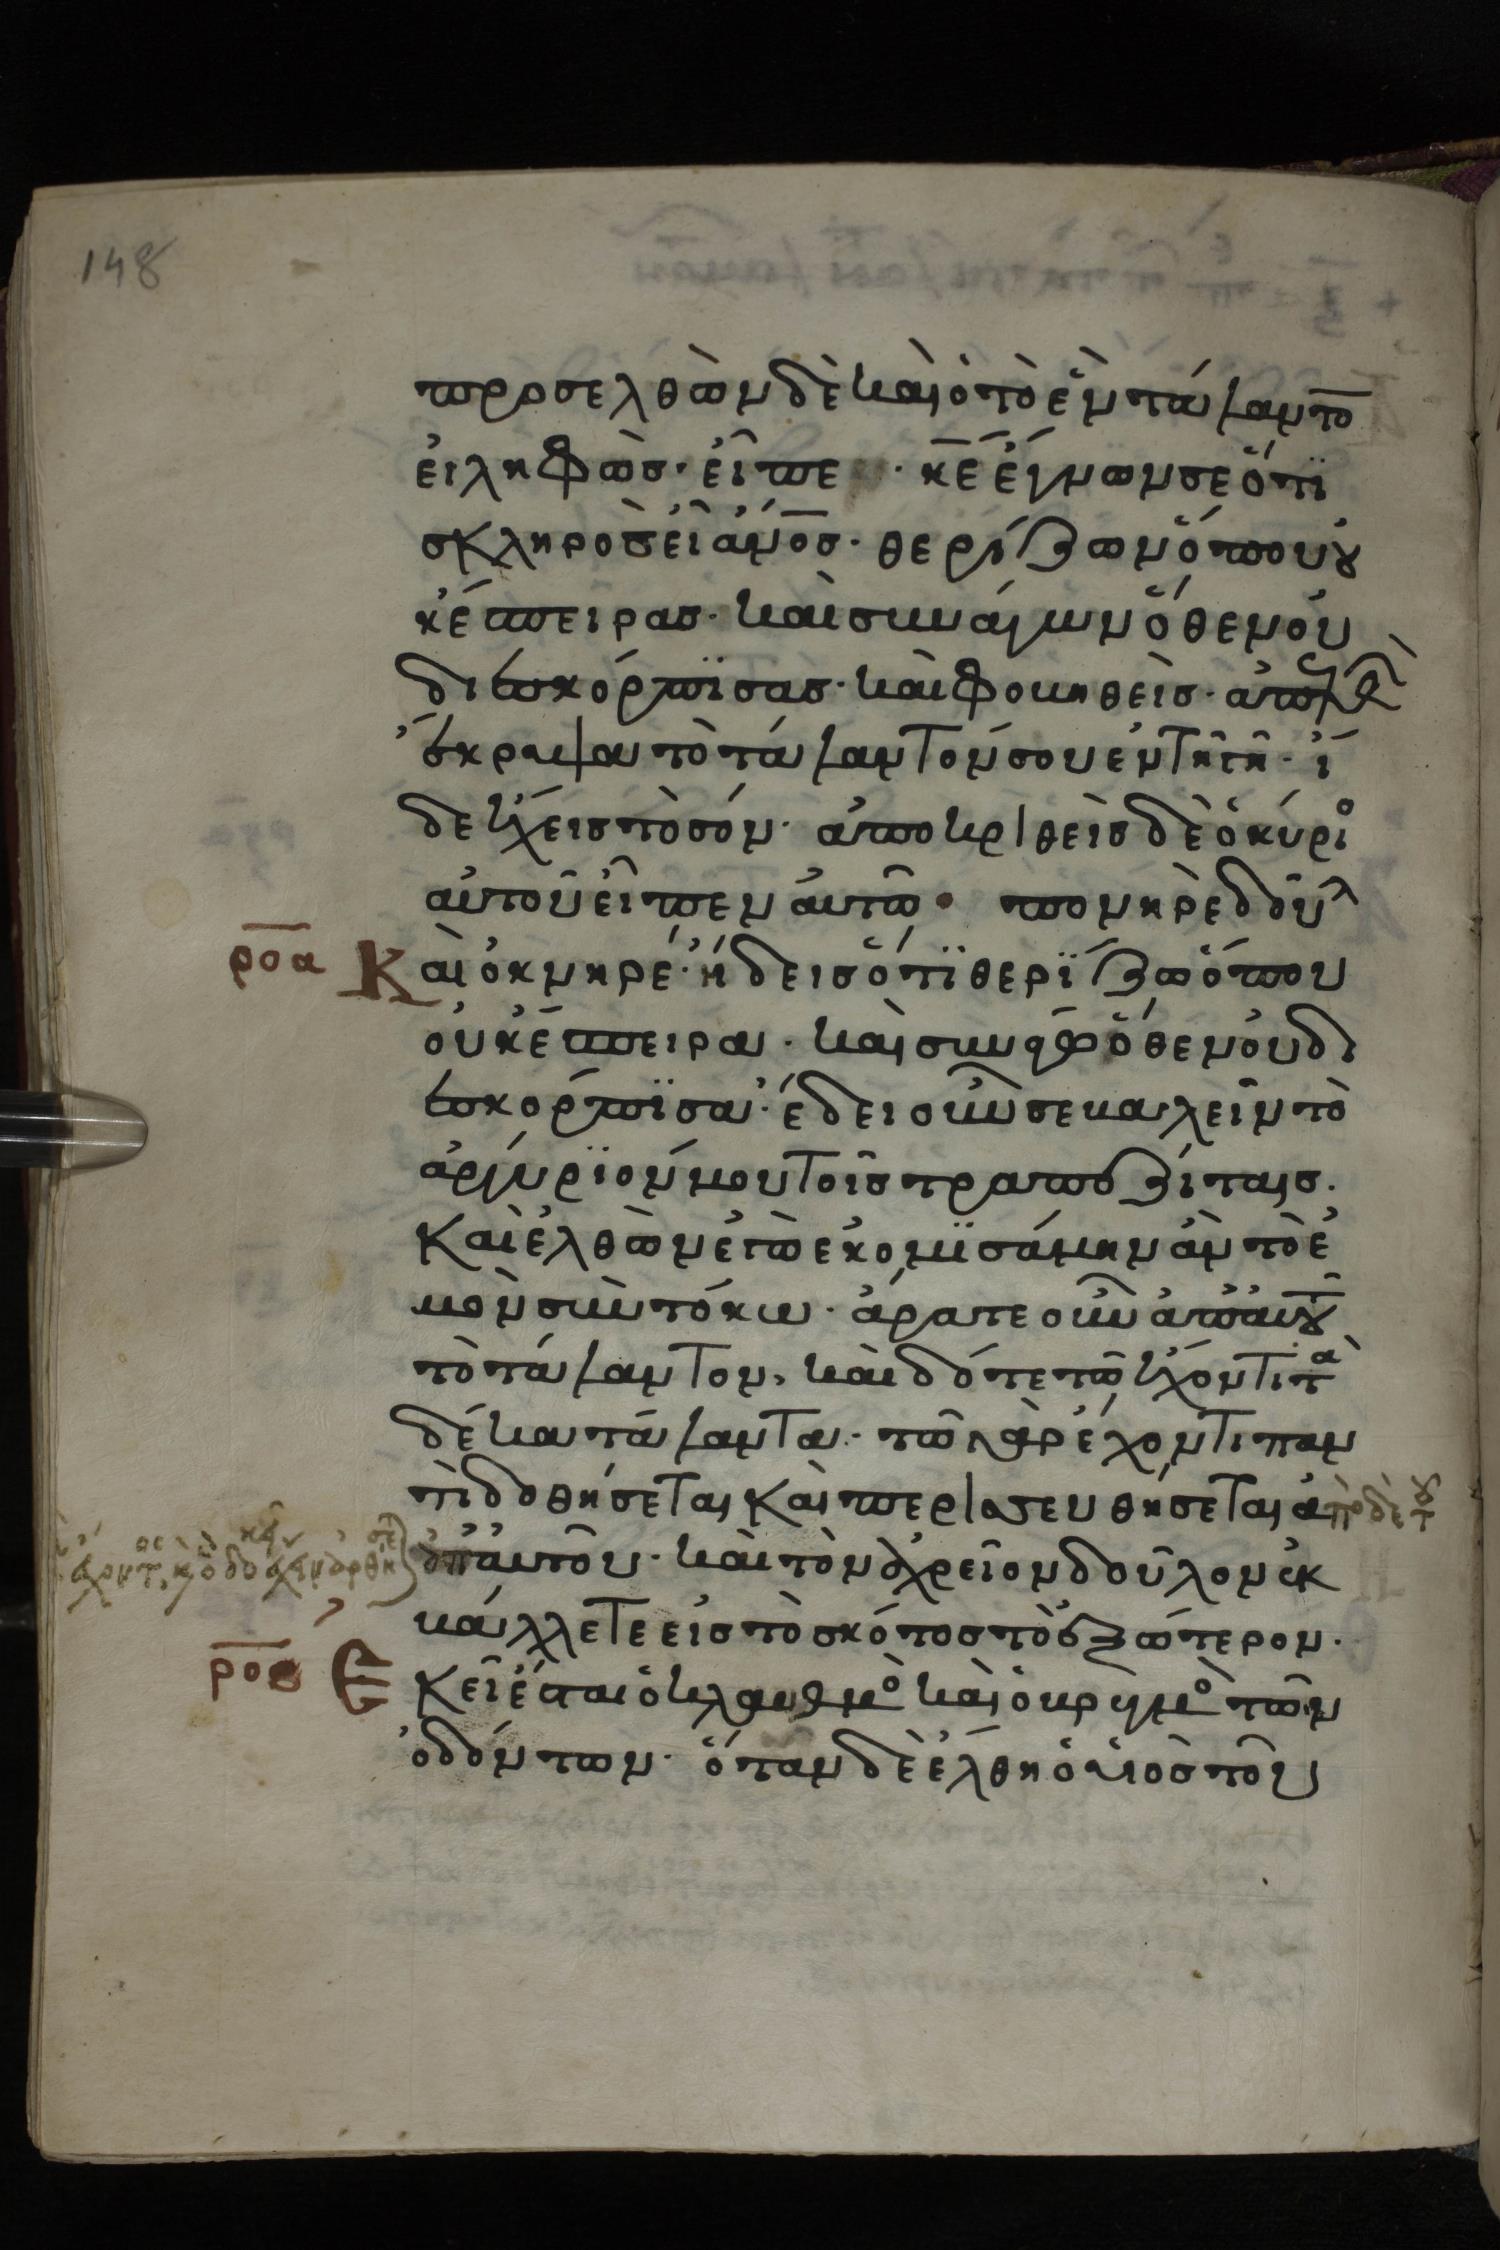 148
προσελθὼν δὲ καὶ ὁ τὸ ἓν τάλαντο
εἰληφὼς· εἶπε · κ̅ε̅ ἔγνων σε ὅτϊ
σκληρὸς εἶ ἄν̅ο̅ς· θερίζων ὅπου οὐ
κ ἔσπειρας· καὶ συνάγων ὅθεν οὐ
διεσκόρπϊσας· καὶ φοβηθεὶς· ἀπελθ
ἔκρυψα τὸ τάλαντόν σου ἐν τῆ γῆ· ἴ
δε ἔχεις τὸ σόν· ἀποκριθεὶς δὲ ὁ κύριο
αὐτοῦ εἶπεν αὐτῶ· πονηρὲ δοῦλ
ρ̅ο̅α̅ Καὶ ὀκνηρέ· ἤδεις ὅτϊ θερΐζω ὅπου
οὐκ ἔσπειρα· καὶ συνάγω ὅθεν οὐ δι
εσκόρπϊσα· ἔδει οὖν σε βαλεῖν τὸ
ἀργύρϊόν μου τοῖς τραπεζίταις·
καὶ ἐλθὼν ἐγὼ ἐκομϊσάμην ἂν τὸ ἐ
μὸν σὺν τόκω· ἄρατε οὖν ἀπ αὐτοῦ
τὸ τάλαντον, καὶ δότε τῶ ἔχοντι τὰ
δέκα τάλαντα· τῶ γὰρ ἔχοντι παν
τὶ δοθήσεται καὶ περισσευθήσεται ἀπὸ δὲ τοῦ
μὴ ἔχοντος, καὶ ὃ δοκεῖ ἔχειν ἀρθήσε ἀπ αὐτοῦ· καὶ τὸν ἀχρεῖον δοῦλον ἐκ
βάλλετε εἰς τὸ σκότος τὸ ἐξώτερον·
ρ̅ο̅β̅ Ἐκεῖ ἔσται ὁ κλαυθμὸ καὶ ὁ βρυγμὸ τῶν
ὀδόντων· ὅταν δὲ ἔλθη ὁ υἱὸς τοῦ